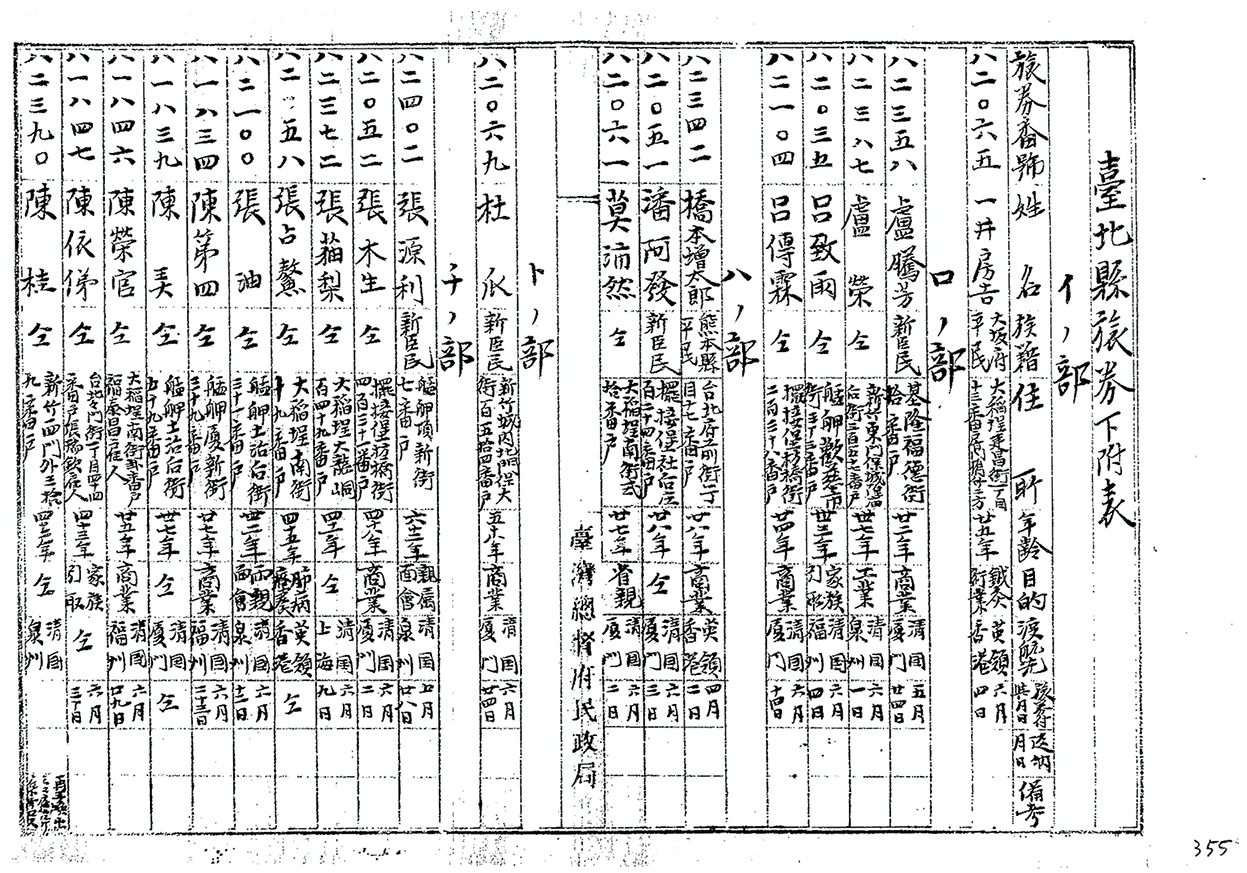 臺北縣旅券下附表
イノ部
旅券番號 姓名 族籍 住所 年齡 目的 渡航先 旅券下付月日 返納月日 備考
八二〇六五 一井房吉 大坂府平民 廿五年 鍼灸術業 英領香港 六月四日
ロノ部
八二三五八 盧騰芳 新臣民 基隆福德街拾番戶 廿二年 商業 清国厦門 五月廿四日
八二三八七 盧榮 仝 廿七年 工業 清国泉州 六月一日
八二〇三五 呂致雨 仝 卅三年 家族引取 清国福州 六月四日
八二一〇四 呂傳霖 仝 擺接保枋橋街二百三十八番戶 廿四年 商業 清国厦門 六月十四日
ハノ部
八二三四二 橋本增太郎 熊本縣平民 台北府前街一丁目七番戶 廿八年 商業 英領香港 四月二日
八二〇五一 潘阿發 新臣民 擺接堡社后庄百二十四番戶 廿八年 仝 清国厦門 六月三日
八二〇六一 莫沛然 仝 大稻埕南街弍拾番戶 廿七年 省親 清国厦門 六月二日
臺灣總督府民政局
トノ部
八二〇六九 杜爪 新臣民 新竹城内北門保大街百五拾四番戶 五十八年 商業 清国厦門 六月廿四日
チノ部
八二四〇二 張源利 新臣民 艋舺頂新街七番戶 六十二年 親屬面會 清国泉州 五月廿八日
八二〇五二 張木生 仝 擺接堡枋橋街四百二十一番戶 四十八年 商業 清国厦門 六月二日
八二三七二 張猫梨 仝 大稻埕大龍峒百四十九番戶 四十二年 仝 清国上海 六月九日
八二〇五八 張占鰲 仝 大稻埕南街十九番戶 四十五年 肺病療養 英領香港 仝
八二一〇〇 張油 仝 艋舺土治后街三十一番戶 廿二年 両親面會 清国泉州 六月十二日
八一八三四 陳第四 仝 艋舺厦新街三十九番戶 廿七年 商業 清国福州 六月二十三日
八一八三九 陳美 仝 艋舺土治后街五十九番戶 卅七年 仝 清国厦門 仝
八一八四六 陳榮官 仝 廿五年 商業 清国福州 六月廿九日
八一八四七 陳依俤 仝 四十三年 家族引取 仝 六月三十日
八二三九〇 陳桂 仝 新竹四門外三拾九番戶 四十二年 仝 清国泉州
355